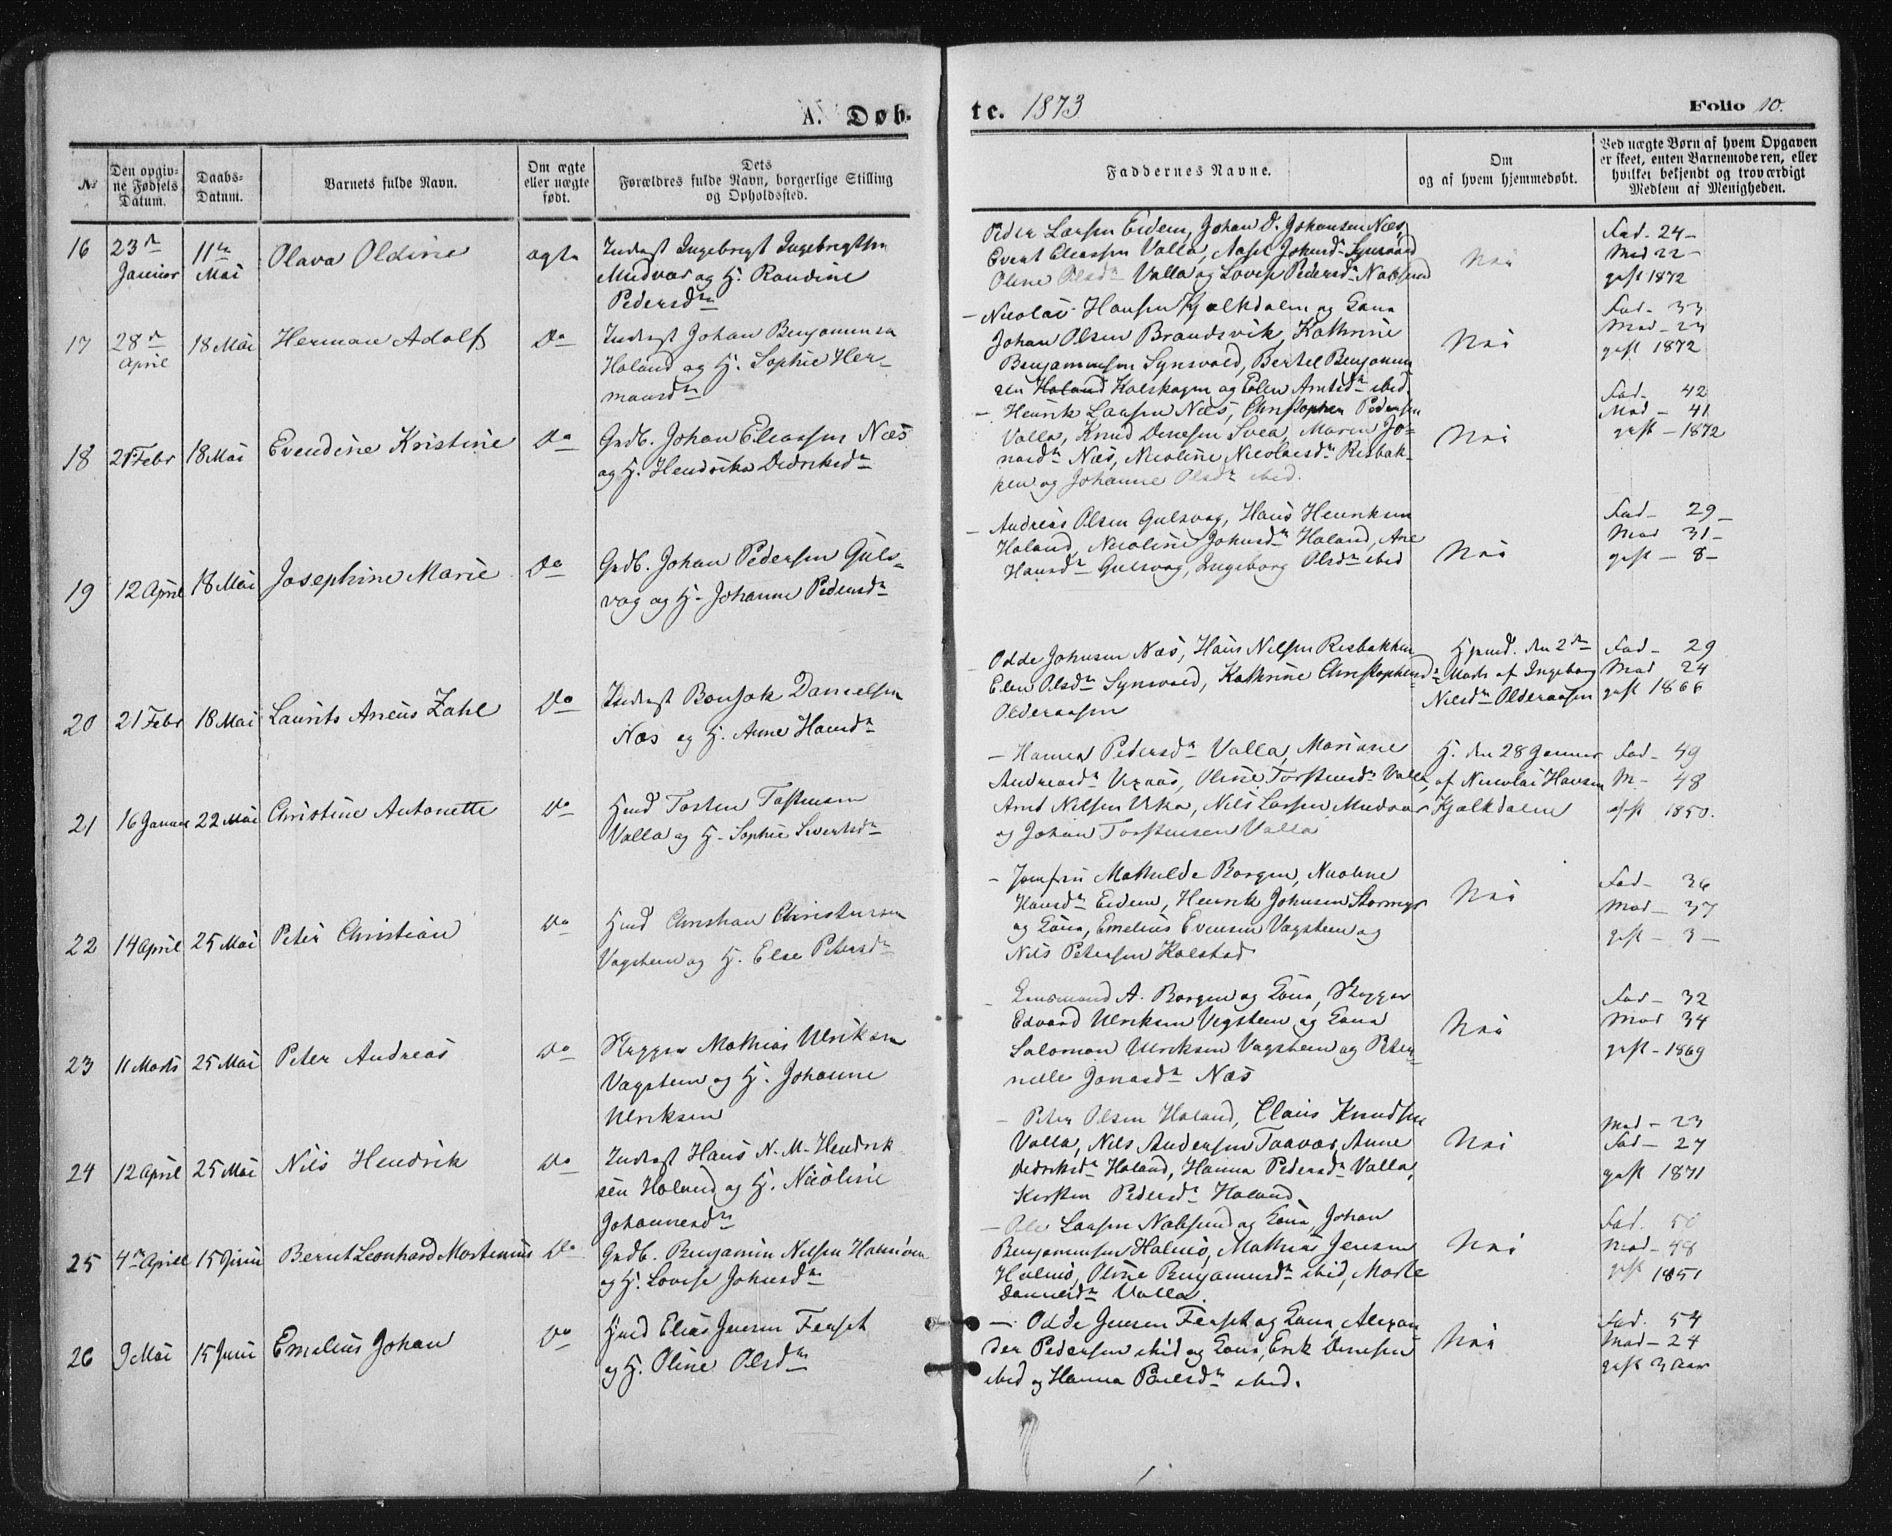 A. Døb-
te. 1873
Folio 10.
№
Den opgiv-
ne Fødsels
Datum.
Daabs-
Datum.
Barnets fulde Navn.
Om ægte
eller uægte
født.
Dets
Forældres fulde Navn, borgerlige Stilling
og Opholdssted.
Faddernes Navne.
Om
og af hvem hjemmedøbt.
Ved uægte Børn af hvem Opgaven
er skeet, enten Barnemoderen, eller
hvilket bekjendt og troværdigt
Medlem af Menigheden.
16
23de
Januar
11te
Mai
Olava Oldine
ægte
Inderst Ingebregt Ingebregtsen
Medvar og H. Randine
Pedersdtr
Peder Larsen Eidem, Johan D. Johansen Næs,
Evert Eliassen Valla, Johnsdtr Synsvold
Oline Olsdtr Valla og Lovise Pedersdtr Nabsund
Nei
Fad. 24
Mod 22
gift 1872
17
28de
April
18 Mai
Herman Adolf
Do
Inderst Johan Benjaminsen
Holand og H. Sophie Her-
mansdtr
– Nicolai Hansen Kjølkdalen og Kona
Johan Olsen Brandsvik, Kathrine
Benjaminsen Synsvold, Bertel Benjamin
sen Holand Kalskagen og Elen Arntsdtr ibid.
Nei
Fad. 33
Mod – 23
gift 1872
18
21 Febr
18 Mai
Evendine Kristine
Do
Grdb. Johan Eliassen Næs
og H. Hendrika Didriksdtr
– Henrik Larsen Næs, Christopher Pedersen
Valla, Knud Denesen Svea, Maren Jo-
nasdtr Næs, Nicoline Nicolaisdtr Risbak-
ken og Johanne Olsdtr ibid.
Nei
Fad. 42
Mod – 41
gift – 1872
19
12 April
18 Mai
Josephine Marie
Do
Grdb. Johan Pedersen Guls-
vog og H. Johanne Pedersdtr
– Andreas Olsen Gulsvog, Hans Henriksen
Holand, Nicoline Johnsdtr Holand, Ane
Hansdtr Gulsvog, Ingeborg Olsdtr ibid
Nei
Fad – 29
Mod 31
gift – 8
20
21 Febr
18 Mai
Laurits Aneus Zahl
Do
Inderst Bonsak Danielsen
Næs og H. Anne Hansdtr
– Odde Johnsen Næs, Hans Nilsen Risbakken
Elen Olsdtr Synsvold, Kathrine Christophersdtr
Olderaasen
Hjemd. den 2de
Marts af Ingeborg
Nilsdtr Olderaasen
Fad – 29
Mod 24
gift 1866
21
16 Januar
22 Mai
Christine Antonette
Do
Hmd Tosten Tostensen
Valla og H. Sophie Sivertsdtr
– Hanna Pedersdtr Valla, Mariane
Andreasdtr, Oline Torstensdtr Valla,
Arnt Nilsen Urka, Nils Larsen Medvar
og Johan Torstensen Valla
H. den 28 Januar
af Nicolai Hansen
Kjølkdalen
Fad – 49
M – 48
gift 1850.
22
14 April
25 Mai
Peter Christian
Do
Hmd Christian Christensen
Vagstem og H. Else Petersdtr
– Jomfru Mathilde Borgen, Nicoline
Hansdtr Eidem, Henrik Johnsen Stormyr
og Kona, Emelius Evensen Vagstem og
Nils Petersen Kolstad
Nei
Fad – 36
Mod – 37
gift – 3 –
23
11 Marts
25 Mai
Peter Andreas
Do
Skipper Mathias Ulriksen
Vagstem og H. Johanne
Ulriksen
– Lensmand A. Borgen og Kona, Skipper
Edvard Ulriksen Vegstem og Kona
Salomon Ulriksen Vagstem og Peter-
nelle Jonasdtr Næs
Nei
Fad – 32
Mod 34
gift – 1869
24
12 April
25 Mai
Nils Hendrik
Do
Inderst Hans N. M. Hendrik
sen Holand og H. Nicoline
Johannesdtr
– Peter Olsen Holand, Claus Knudsen
Valla, Nils Andersen Taavær, Anne
Didriksdtr Holand, Hanna Pedersdtr Valla,
Kirsten Pedersdtr Holand.
Nei
Mod – 23
Fad – 27
gift 1871
25
4de April
15 Juni
Bernt Leonhard Mortinius
Do
Grdb. Benjamin Nilsen
og H. Lovise Johnsdtr
– Ole Larsen Nabsund og Kona, Johan
Benjaminsen Holmø, Mathias Jensen
Holmø, Oline Benjaminsdtr ibid, Marte
Danielsdtr Valla.
Nei
Fad. 50
Mod – 48
gift 1851
26
9 Mai
15 Juni
Emelius Johan
Do
Hmd Elias Jensen Forset
og H. Oline Olsdtr
– Odde Jensen Forset og Kona, Alexan-
der Pedersen ibid og Kona, Erik Denesen
ibid og Hanna Paulsdtr ibid.
Nei
Fad. 54
Mod – 24
gift 3 Aar